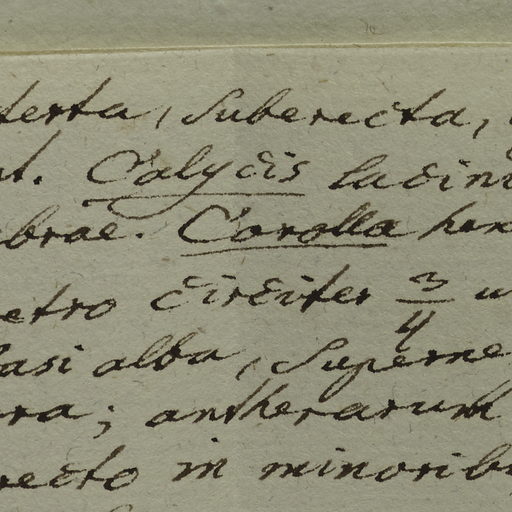 terta, suberecta,
nt. Calycis lacini
brae. Corolla hex
etro circiter 3/4 u
basi alba, superne
ra; antherarum
recto in minorib